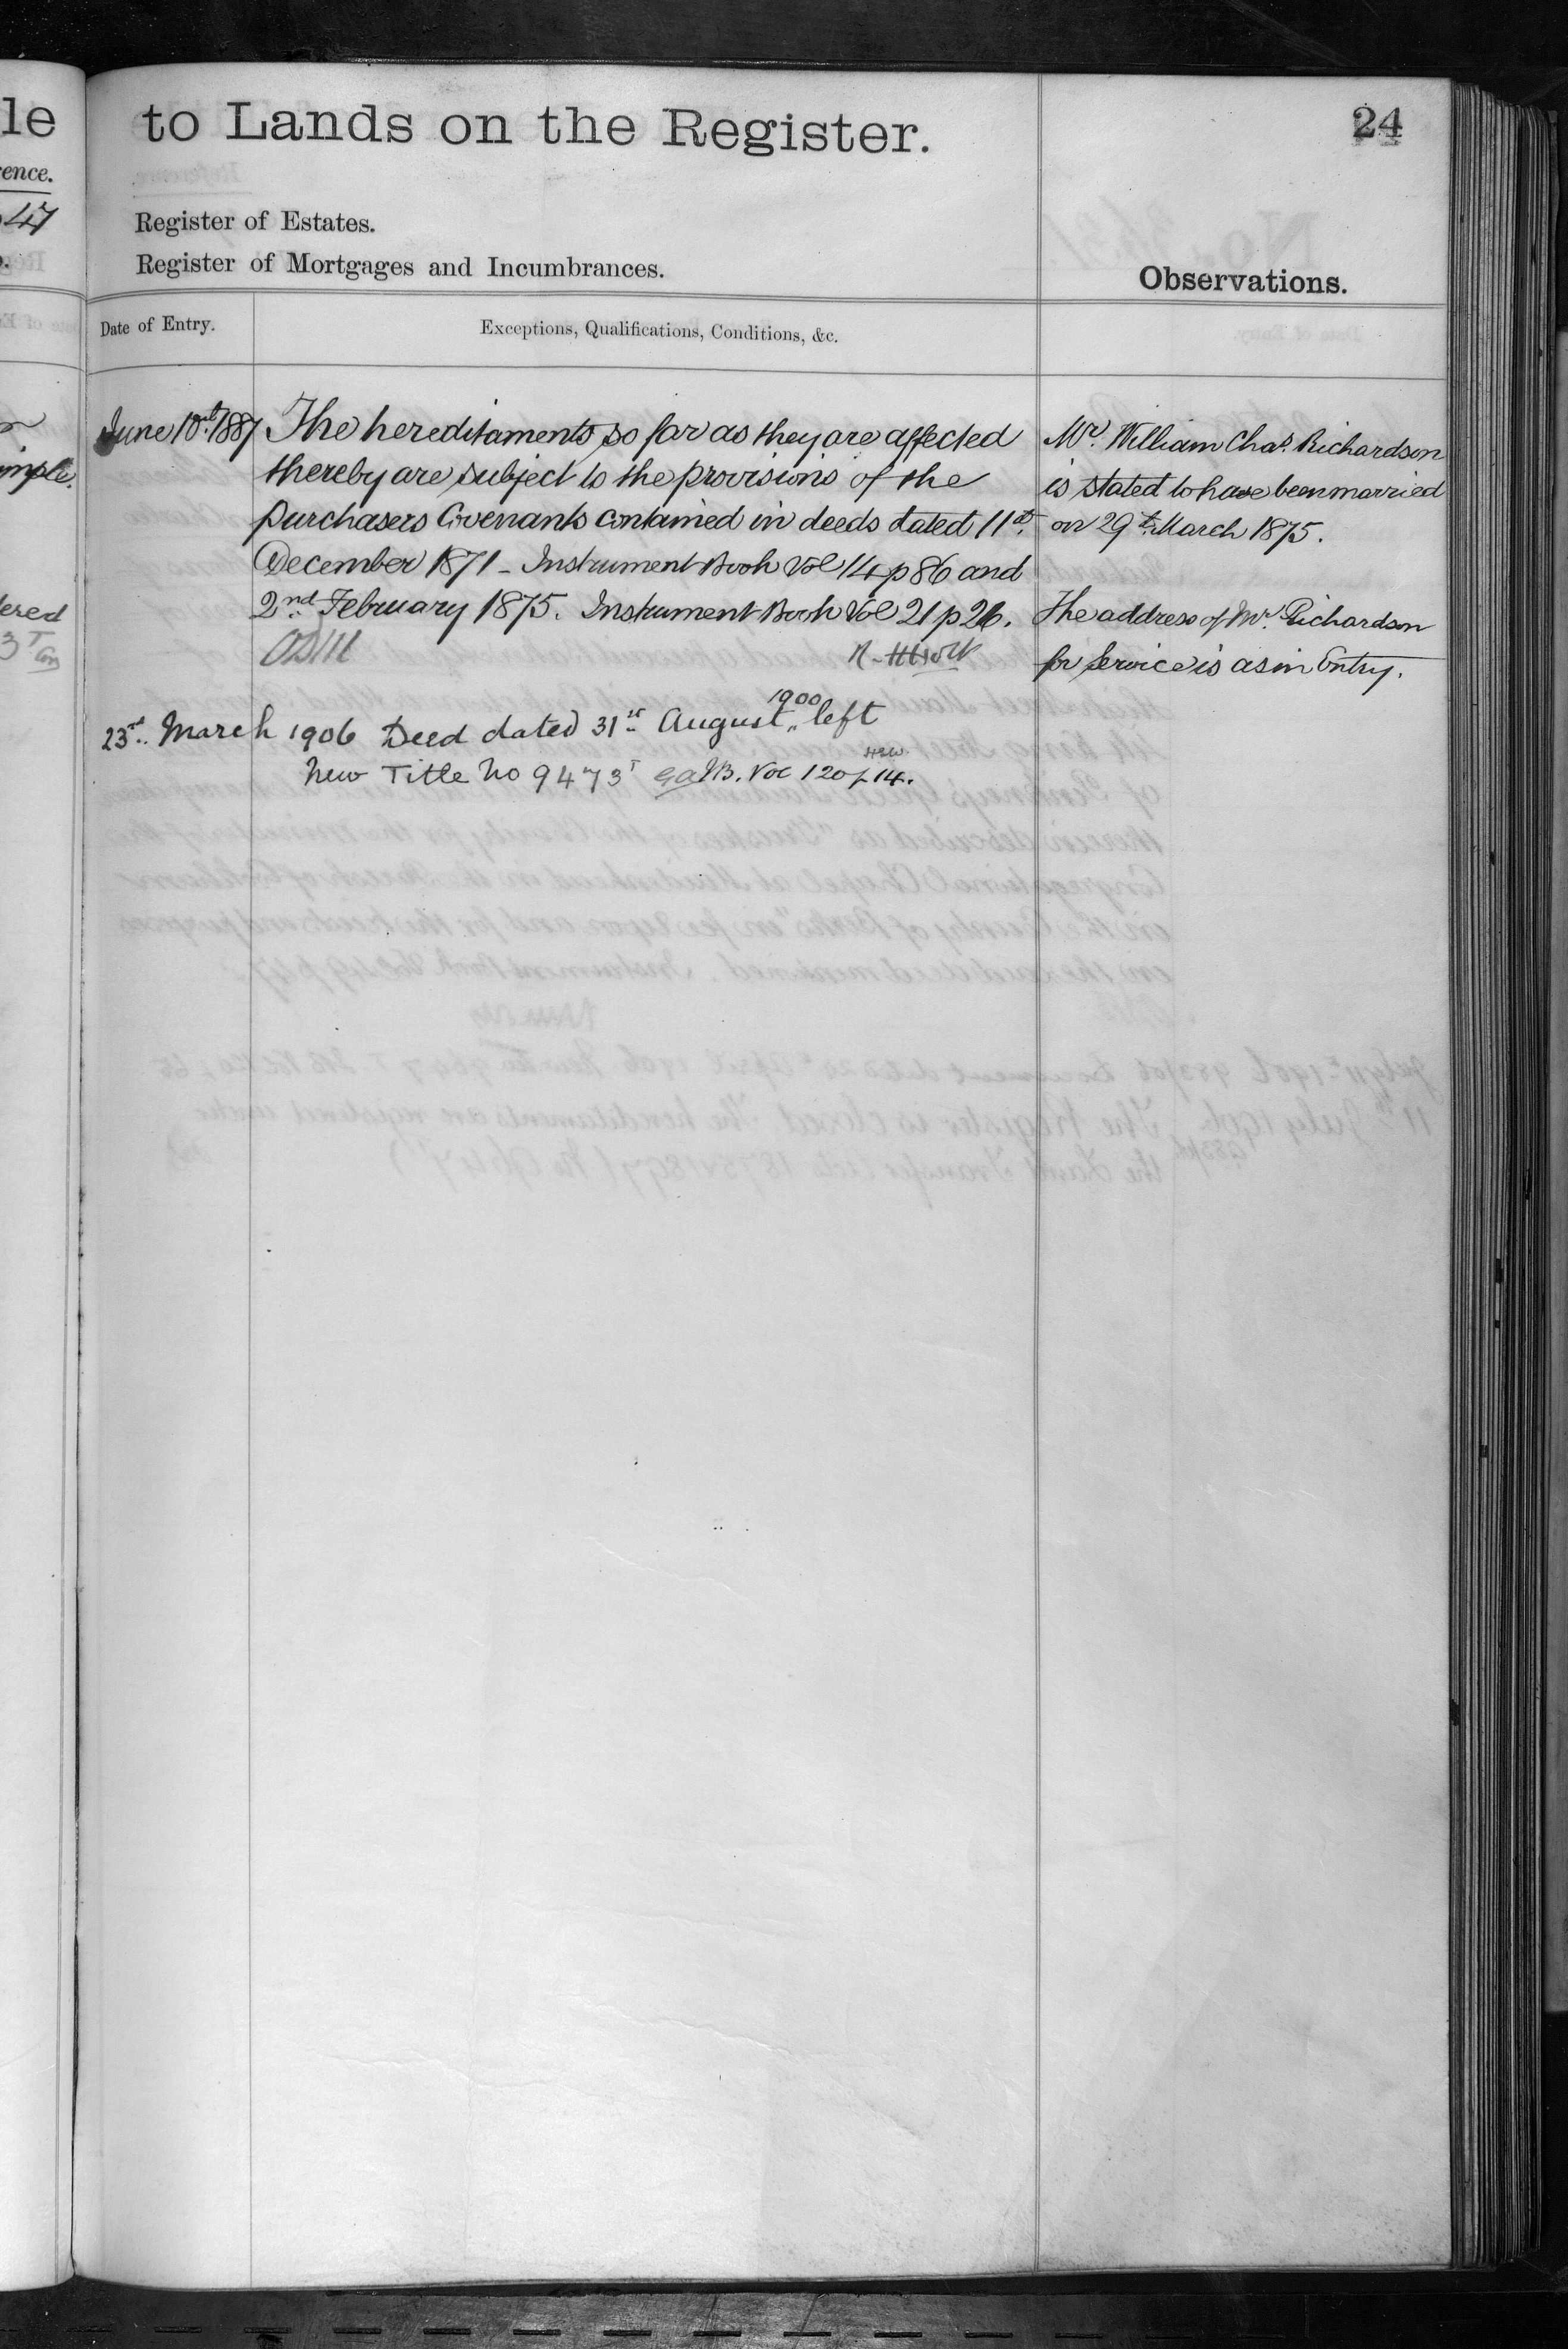 le
to Lands on the Register.
24
ence.
47
Register of Estates.
Register of Mortgages and Incumbrances.
Observations.
Date of Entry.
Exceptions, Qualifications, Conditions, &c.
June 10th 1887 The hereditaments so far as they are affected
thereby are subject to the provisions of the
purchasers Covenants contained in deeds dated 11th
December 1871 - Instrument Book Vol 14 p 86 and
2nd February 1875. Instrument Book Vol 21 p 26.
Mr. William Chas. Richardson
is stated to have been married
on 29th March 1875.
The address of Mr. Richardson
for Service is as in Entry.
imple.
ered
23rd March 1906 Deed dated 31st August 1900 left
New Title No 9473 T I.B. Vol 120 p 14.